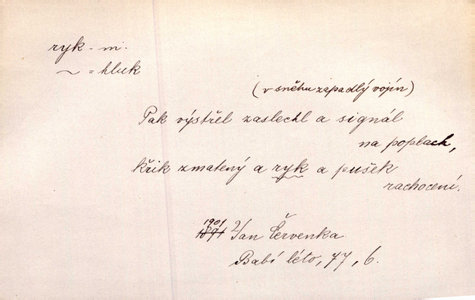 ryk - m.
~ = hluk
(v sněhu zapadlý vojín)
Pak výstřel zaslechl a signál
na poplach,
křik zmatený a ryk a pušek
rachocení.
1901
1891 Jan Červenka
Babí léto, 77, 6.